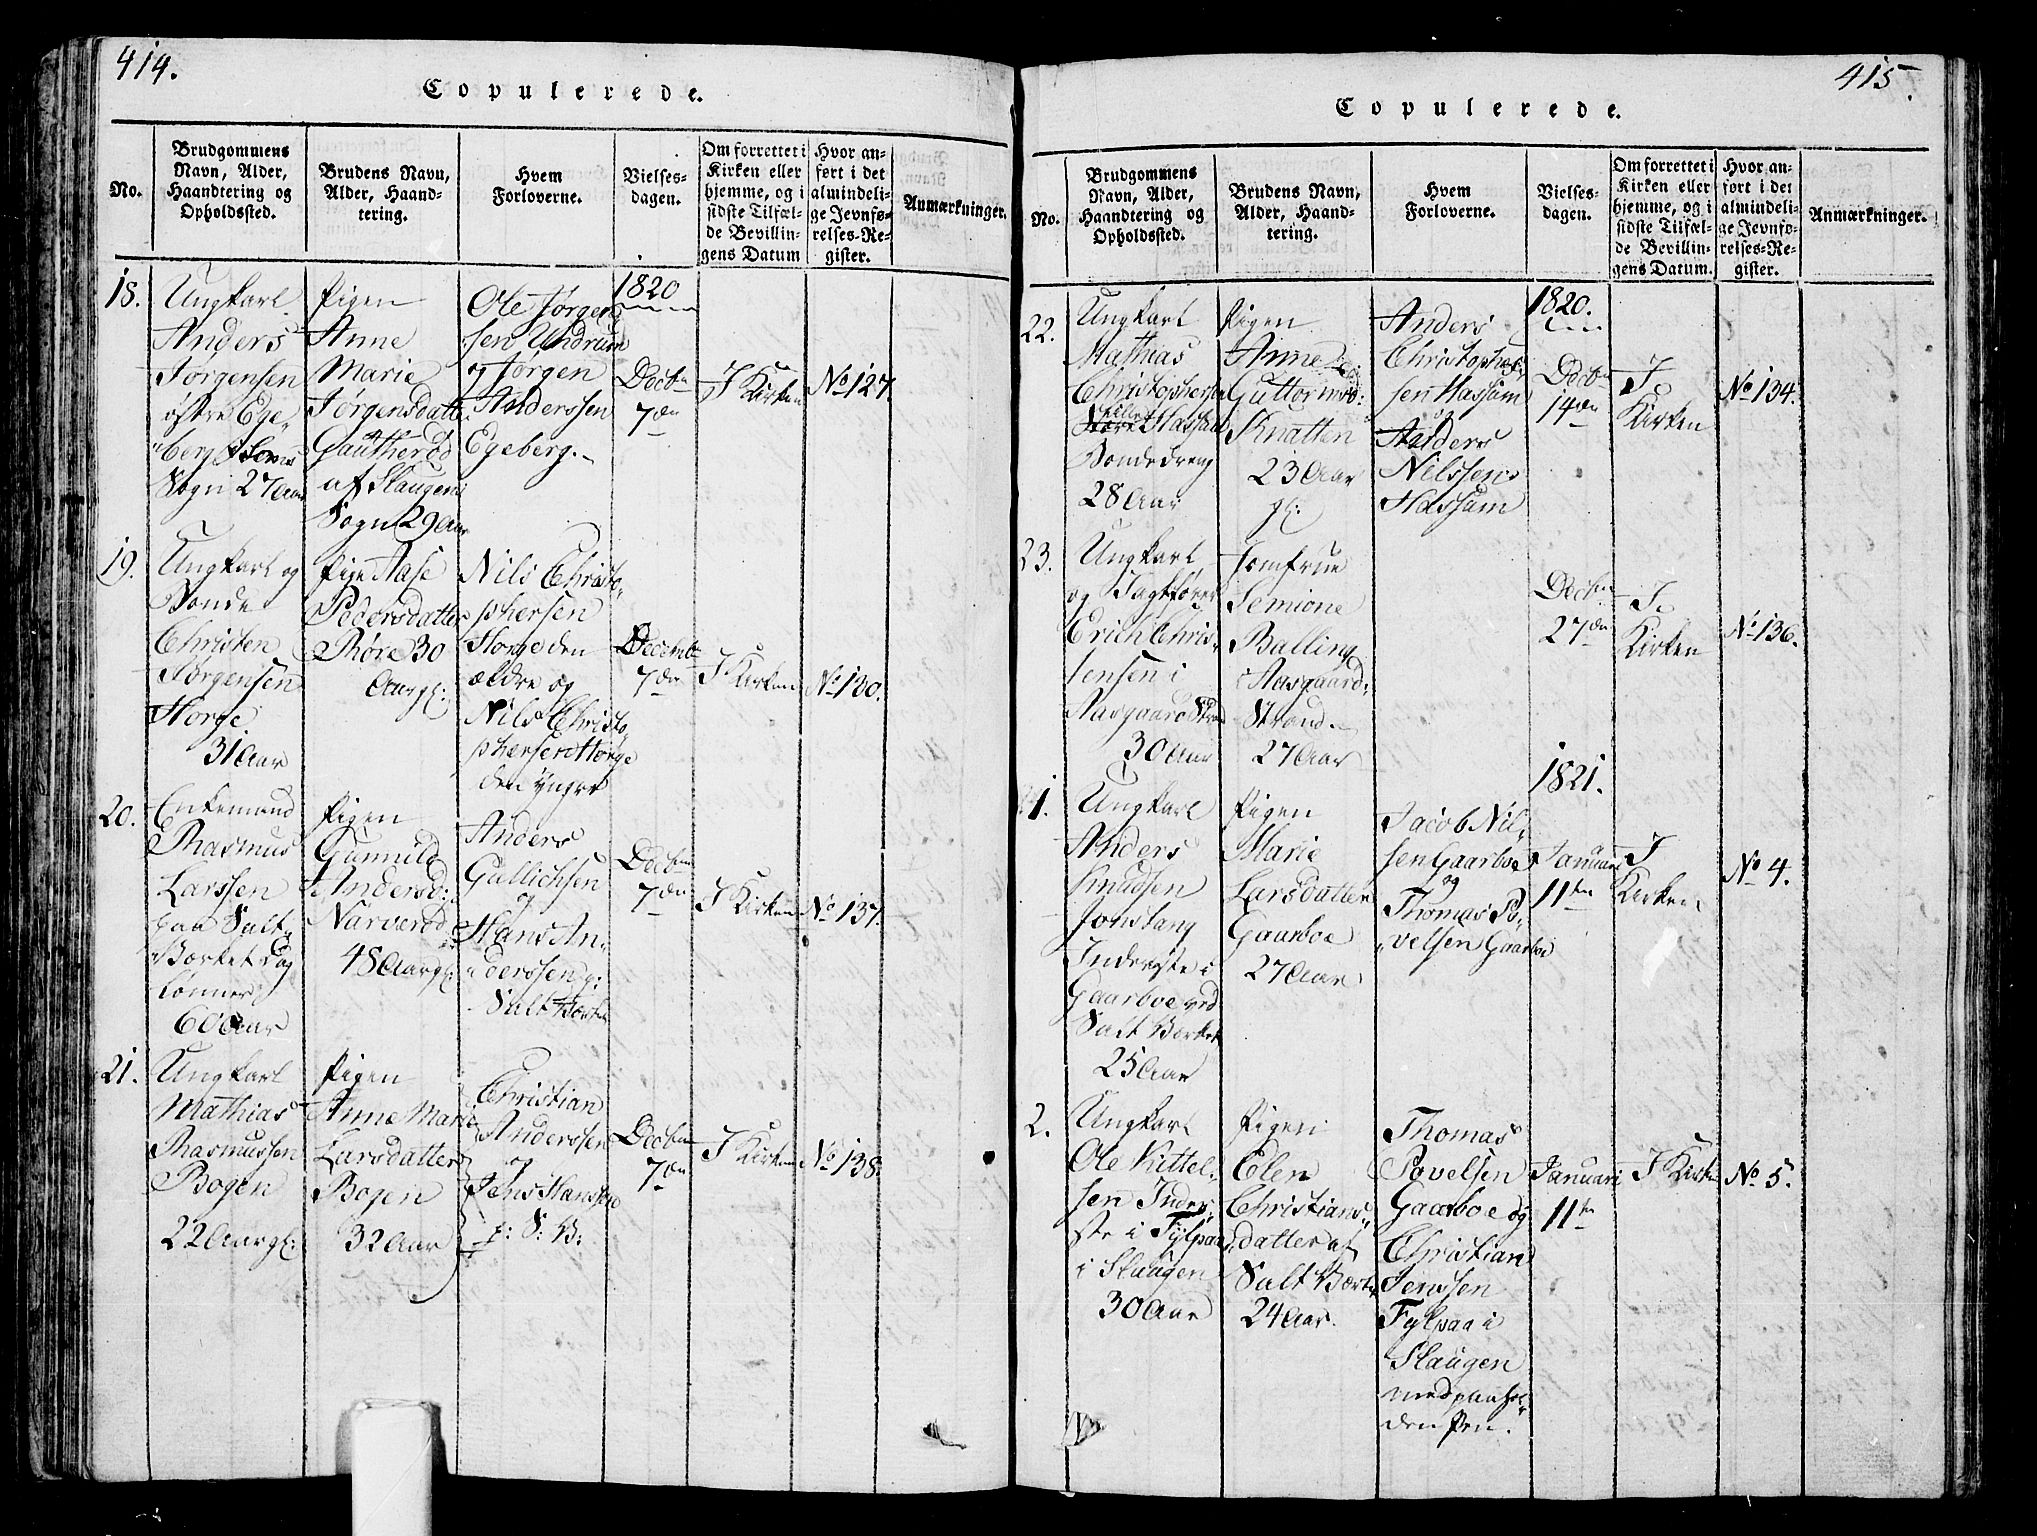 414.
Copulerede.
No.
Brudgommens
Navn, Alder,
Haandtering og
Opholdssted.
Brudens Navn,
Alder, Haand-
tering.
Hvem
Forloverne.
Vielses-
dagen.
Om forrettet i
Kirken eller
hjemme, og i
sidste Tilfæl-
de Bevillin-
gens Datum
Hvor an-
ført i det
almindeli-
ge Jevnfø-
relses-Re-
gister.
Anmærkninger.
18.
Ungkarl
Anders
Jørgensen
østre Ege-
berg Sems
Sogn 27 Aar
Pigen
Anne
Marie
Jørgensdatter
Gautherød
af Slaugens
Sogn 29 Aar
Ole Jørgen
sen Undrum
og Jørgen
Anderssen
Egeberg.
1820
Decbr
7de
I Kirken
No 127.
19.
Ungkarl og
Bonde
Christen
Jørgensen
Horge
31 Aar
Pige Aase
Pedersdatter
Røre 30
Aar gl:
Nils Christo-
phersen
Horge den
ældre og
Nils Christo
phersen Horge
den yngre
Decemb
7de
I Kirken
No 130.
20.
Enkemand
Rasmus
Larssen
paa Salt-
Børket Dag
lønner
60 Aar
Pigen
Gunnild
Andersd:
Narverød
48 Aar gl:
Anders
Gullichsen
og
Hans An-
derssen p:
Salt Børket
Decbr
7de
I Kirken
No 137.
21.
Ungkarl
Mathias
Rasmussen
Bogen
22 Aar gl:
Pigen
Anne Marie
Larsdatter
Bogen
32 Aar
Christian
Anderssen
og
Jens Hanssen
p: S: B:
Decbr
7de
I Kirken
No 138.
415.
Copulerede.
No.
Brudgommens
Navn, Alder,
Haandtering og
Opholdssted.
Brudens Navn,
Alder, Haand-
tering.
Hvem
Forloverne.
Vielses-
dagen.
Om forrettet i
Kirken eller
hjemme, og i
sidste Tilfæl-
de Bevillin-
gens Datum.
Hvor an-
ført i det
almindeli-
ge Jevnfø-
relses-Re-
gister.
Anmærkninger.
22.
Ungkarl
Mathias
Christophersen
Hassum
Bondedreng
28 Aar
Pigen
Anne
Guttormsd:
Knatten
23 Aar
gl:
Anders
Christopher-
sen Hassum
og
Anders
Nilssen
Hassum
1820.
Decbr
14de
I
Kirken
No 134.
23.
Ungkarl
og Jagtfører
Erich Chris-
tensen i
Aasgaard Strand
30 Aar
Jomfrue
Semione
Balling
i Aasgaard-
Strand.
27 Aar
Decbr
27de
I
Kirken
No 136.
1.
Ungkarl
Anders
Knudsen
Jonstang
Inderste i
Gaarboe ved
Salt Børket
25 Aar
Pigen
Marie
Larsdatter
Gaarboe
27 Aar
Jacob Nil-
sen Gaarboe
og
Thomas Po-
velsen Gaarboe
1821.
Januari
11te
I
Kirken
No 4.
2.
Ungkarl
Ole Kittel-
sen Inder-
ste i Fylpaa
i Slaugen
30 Aar
Pigen
Elen
Christians-
datter af
Salt Børket
24 Aar.
Thomas
Povelsen
Gaarboe og
Christian
Jenssen
Fylpaa i
Slaugen
med paahol-
den Pen.
Januari
11te
I Kirken
No 5.